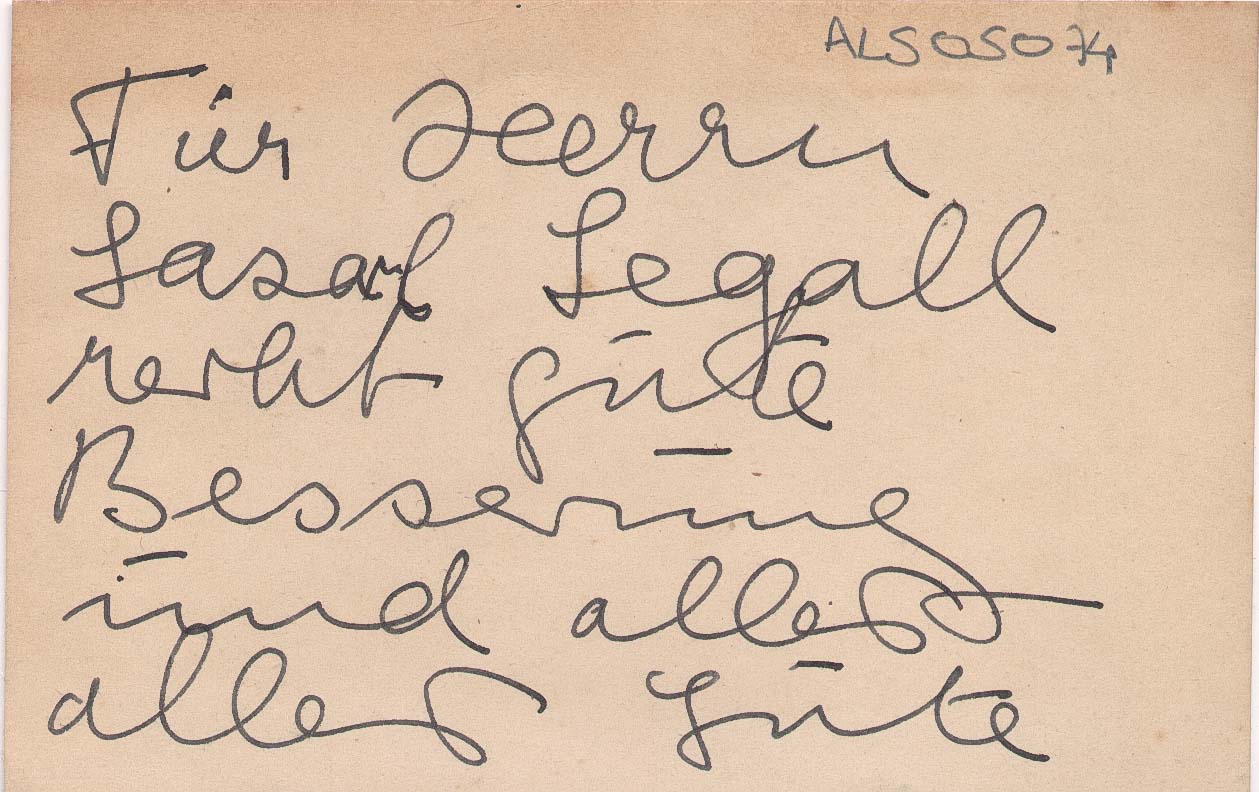 ALS05074
Für Herrn
Lasar Segall
recht gute
Besserung
und alles
alles Gute